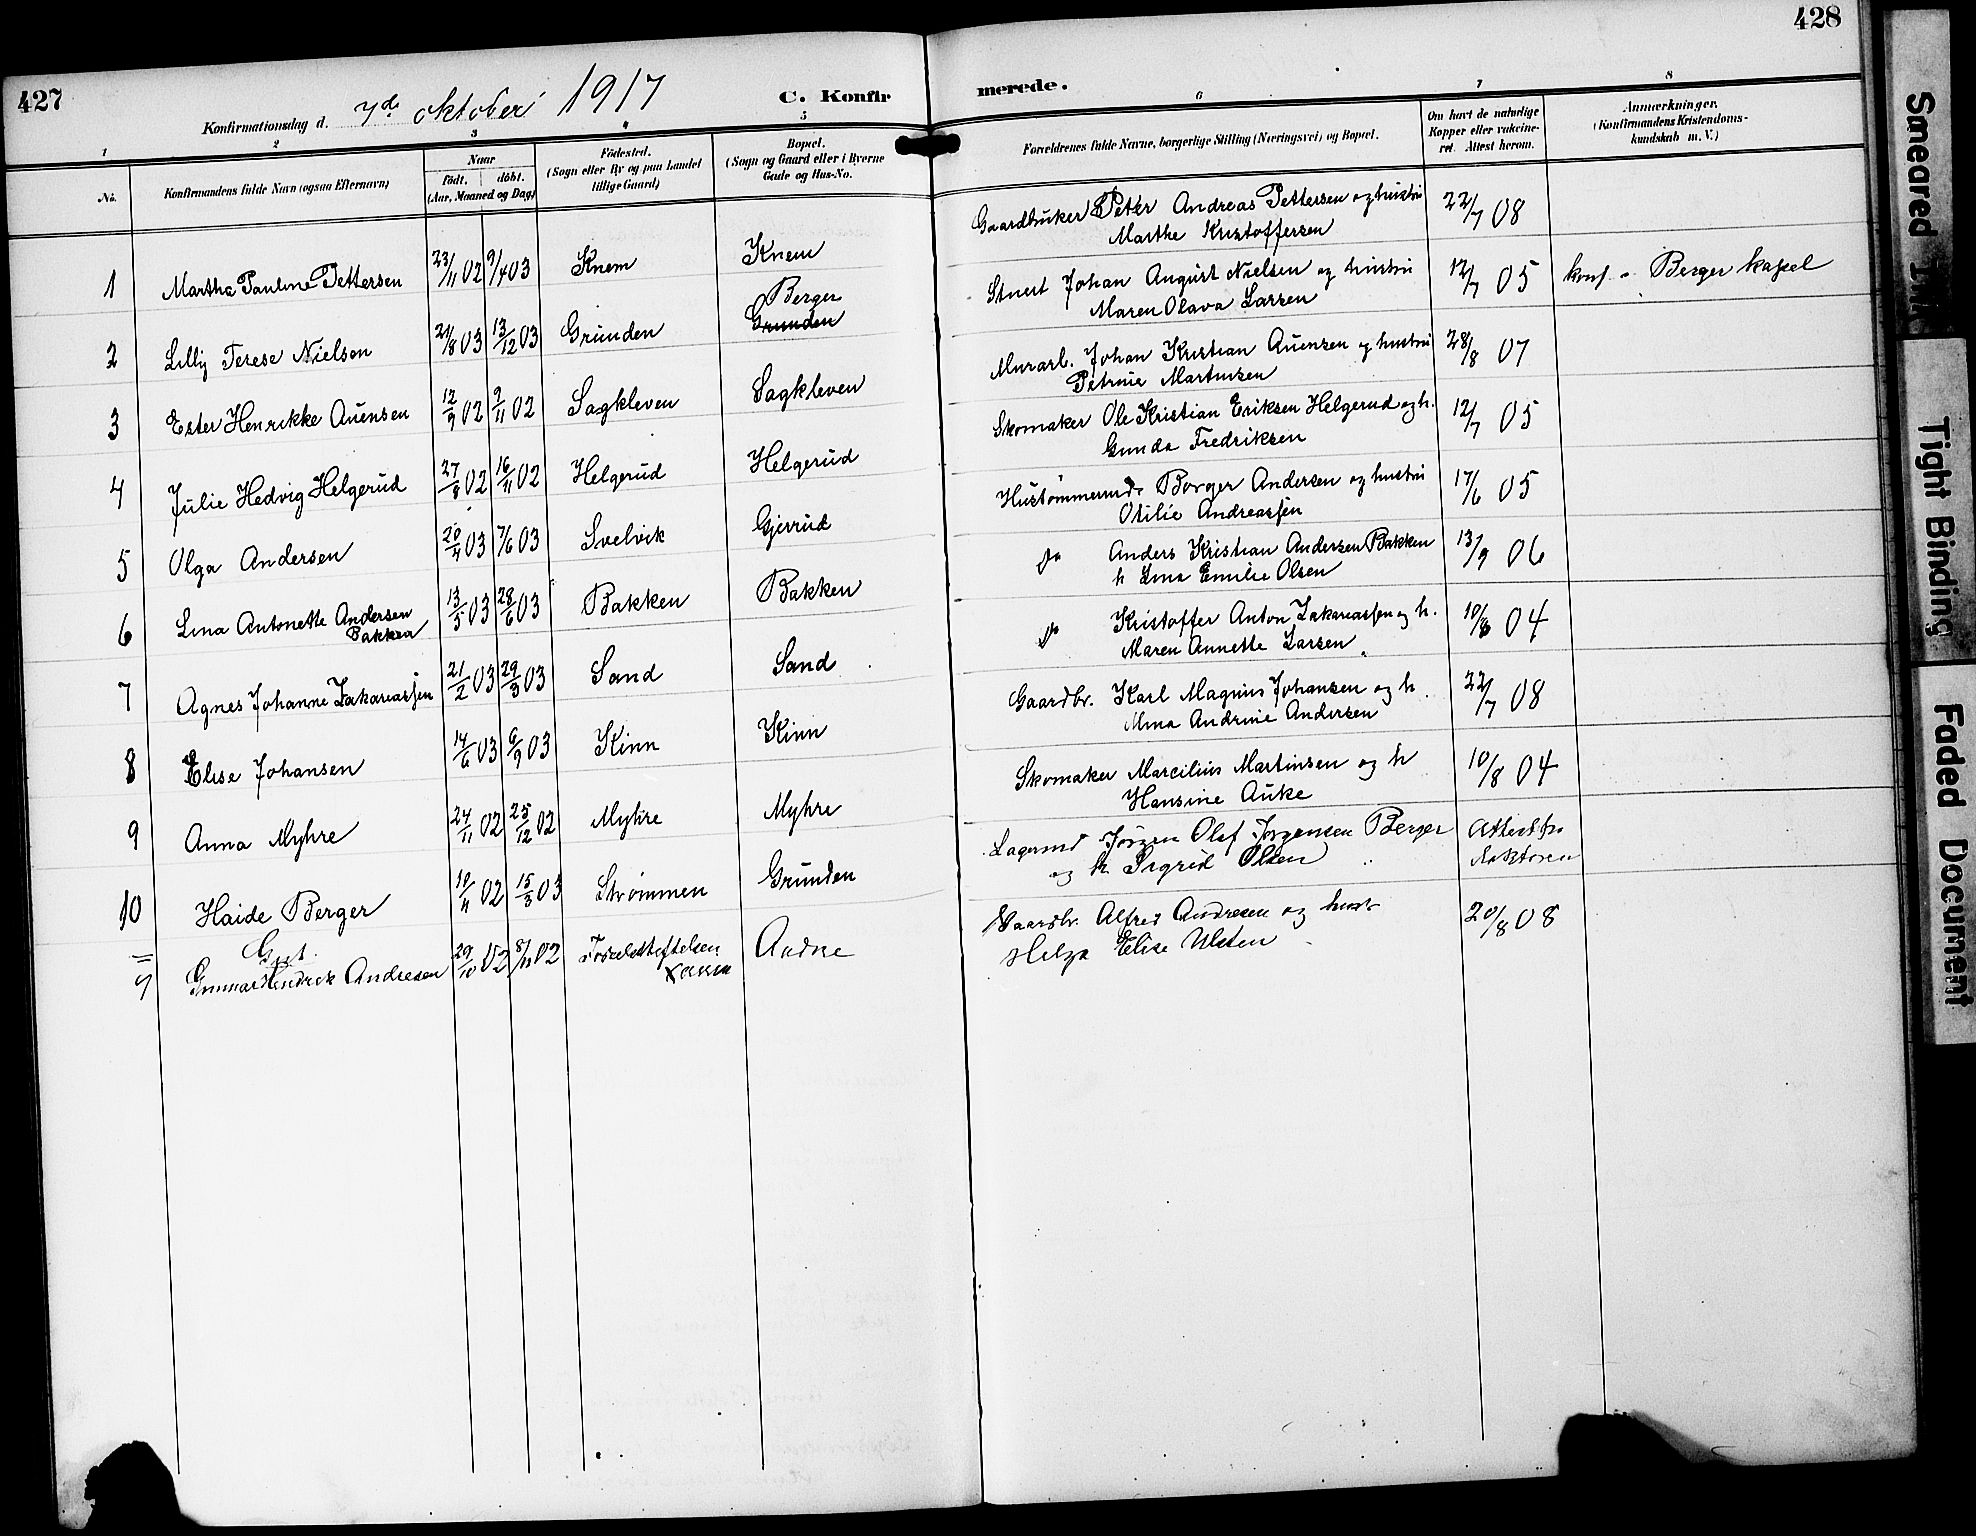 427
428
Konfirmationsdag d. 7de oktober 1917
C. Konfirmerede.
1 2 3 4 5 6 7 8
No.
Konfirmandens fulde Navn (ogsaa Efternavn)
Naar
födt. döbt.
(Aar, Maaned og Dag)
Födested.
(Sogn eller By og paa Landet
tillige Gaard)
Bopæl.
(Sogn og Gaard eller i Byerne
Gade og Hus-No.
Forældrenes fulde Navne, borgerlige Stilling (Næringsvei) og Bopæl.
Om havt de naturlige
Kopper eller vakcine-
ret. Attest herom.
Anmærkninger.
(Konfirmandens Kristendoms-
kundskab m. V.)
1 Martha Pauline Pettersen 23/11 02 9/4 03 Knem Knem Gaardbruker Peter Andreas Pettersen og hustru 22/7 08
Marthe Kristoffersen
2 Lilly Terese Nielsen 21/8 03 13/12 03 Grunden Berger
Grunden
Stuert Johan August Nielsen og hustru 12/7 05 konf. i Berger kapel
Maren Olava Larsen
3 Ester Henrikke Auensen 12/9 02 2/11 02 Sagkleven Sagkleven Murarb. Johan Kristian Auensen og hustru 28/8 07
Petrine Martinsen
4 Julie Hedvig Helgerud 27/8 02 16/11 02 Helgerud Helgerud Skomaker Ole Kristian Eriksen Helgerud og h. 12/7 05
Gunda Fredriksen
5 Olga Andersen 20/4 03 7/6 03 Svelvik Gjerrud Hustømmermd. Borger Andersen og hustru 17/6 05
Otilie Andreassen
6 Lina Antonette Andersen
Bakken
13/5 03 28/6 03 Bakken Bakken do Anders Kristian Andersen Bakken 13/9 06
h Lina Emilie Olsen
7 Agnes Johanne Zakariassen 21/2 03 29/3 03 Sand Sand do Kristoffer Anton Zakariassen og h. 10/8 04
Maren Annette Larsen
8 Elise Johansen 14/6 03 6/9 03 Kinn Kinn Gaardbr. Karl Magnus Johansen og h. 22/7 08
Mina Andrine Andersen
9 Anna Myhre 24/11 02 25/12 02 Myhre Myhre Skomaker Marcilius Martinsen og h 10/8 04
Hansine Auke
10 Haide Berger 10/11 02 15/3 03 Strømmen Grunden Lagermd Jørgen Olaf Jørgensen Berger Attest fra
og h. Sigrid Olsen doktoren
Gut.
9 Gunnar Hendrik Andresen 29/10 02 8/12 02 Fødselsstiftelsen Gaardbr. Alfred Andresen og hust. 20/8 08
Helga Elise Ulsten
Smeared Ink
Tight Binding
Faded Document